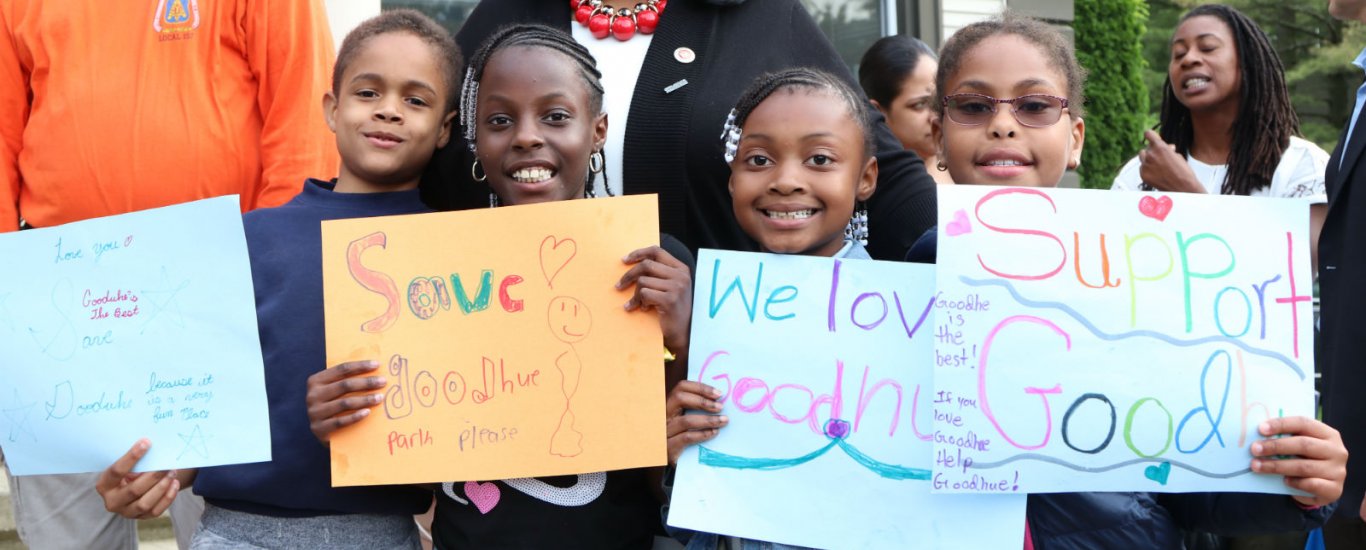 LOCAL
Love you
Gooduhe's
The Best
Save
Gooduhe
because it
is a very
fun Place
Save
goodhue
park please
We lov
Goodhu
Support
Goodhe
is
the
best!
If you
love
Goodhue
Help
Goodhue!
Goodh